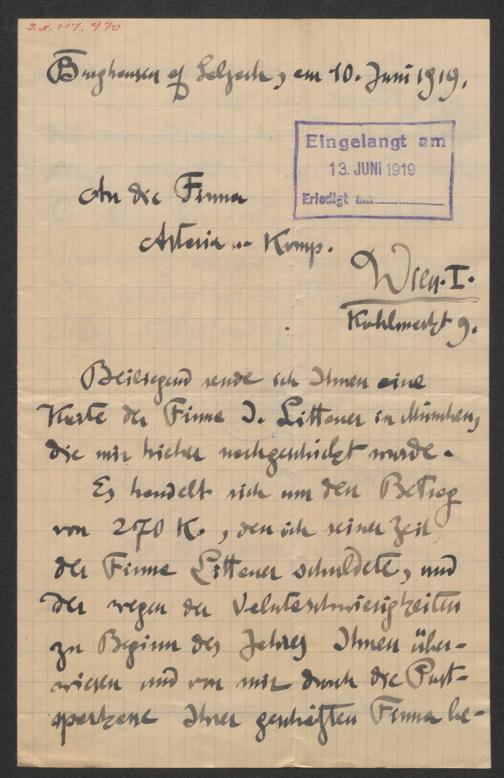 I.N. 117.970
Burghausen a/ Salzach, am 10. Juni 1919.
Eingelangt am
13. JUNI 1919
Erledigt am
An die Firma
Artaria u. Komp.
Wien. I.
Kohlmarkt 9.
Beiliegend sende ich Ihnen eine
Karte der Firma J. Littauer in München,
die mir hieher nachgeschickt wurde.
Es handelt sich um den Betrag
von 270 K., den ich seiner Zeit
der Firma Littauer schuldete, und
der wegen der Valutaschwierigkeiten
zu Beginn des Jahres Ihnen über-
wiesen und von mir durch die Post-
sparkasse Ihrer geschätzten Firma be-